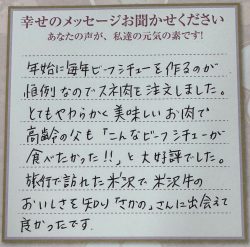 幸せのメッセージお聞かせください
あなたの声が、私達の元気の素です!
年始に毎年ビーフシチューを作るのが
恒例なのでスネ肉を注文しました。
とてもやわらかく美味しいお肉で
高齢の父も「こんなビーフシチューが
食べたかった!!」と大好評でした。
旅行で訪れた米沢で米沢牛の
おいしさを知り「さかの」さんに出会えて
良かったです。